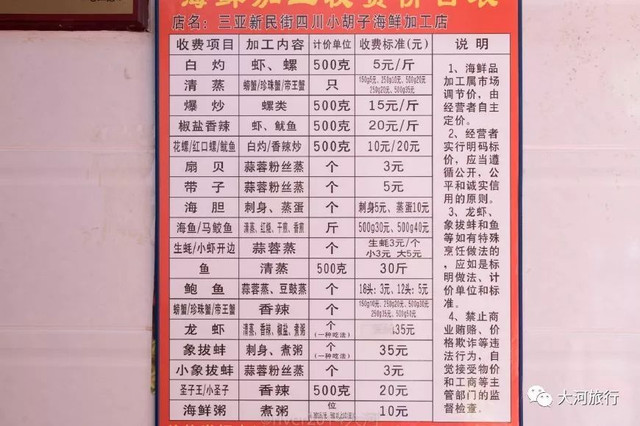 海鲜加工收费价目表
店名：三亚新民街四川小胡子海鲜加工店
收费项目 加工内容 计价单位 收费标准(元) 说明
白灼 虾、螺 500克 5元/斤
清蒸 螃蟹/珍珠蟹/帝王蟹 只
爆炒 螺类 500克 15元/斤
椒盐香辣 虾、鱿鱼 500克 20元/斤
花螺/红口螺/鱿鱼 白灼/香辣炒 500克 10元/20元
扇贝 蒜蓉粉丝蒸 个 3元
带子 蒜蓉粉丝蒸 个 5元
海胆 刺身、蒸蛋 个 刺身5元、蒸蛋10元
海鱼/马鲛鱼 清蒸、红烧、干煎、香煎 斤 500g30元、500g40元
生蚝/小虾开边 蒜蓉蒸 个 生蚝3元/个
小3元 大5元
鱼 清蒸 500克 30斤
鲍鱼 蒜蓉蒸、豉汁蒸 个 18头：3元，12头：5元
螃蟹/珍珠蟹/帝王蟹 香辣 个
龙虾 清蒸、香辣、椒盐、煮粥 个(一种吃法) 35元
象拔蚌 刺身、煮粥 个(一种吃法) 35元
小象拔蚌 蒜蓉粉丝蒸 个 3元
圣子王/小圣子 香辣 500克 20元
海鲜粥 煮粥 位 10元
1、海鲜品
加工属市场
调节价，由
经营者自主
定价。
2、经营者
实行明码标
价，应当遵
循公开，公
平和诚实信
用的原则。
3、龙虾、
象拔蚌和鱼
等如有特殊
烹饪做法的
，应如是标
明做法、计
价单位和标
准。
4、禁止商
业贿赂，价
格欺诈等违
法行为，自
觉接受物价
和工商等主
管部门的监
督检查。
大河旅行